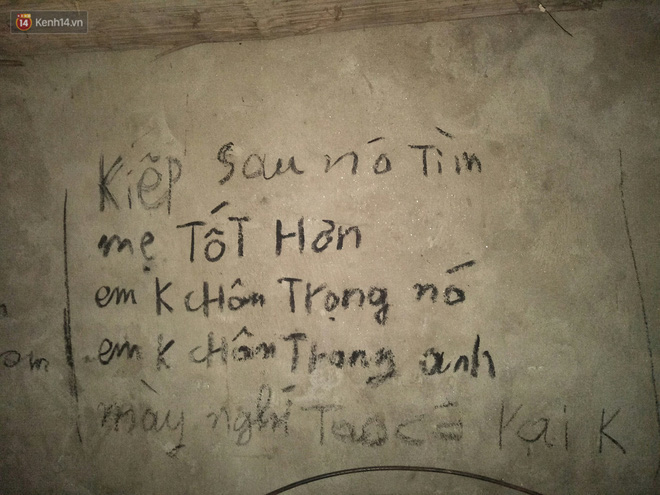 14 Kenh14.vn
Kiếp sau nó Tìm
mẹ TỐT Hơn
em K cHân Trọng nó
em K cHân Trọng anh
mày nghĩ Tao có K